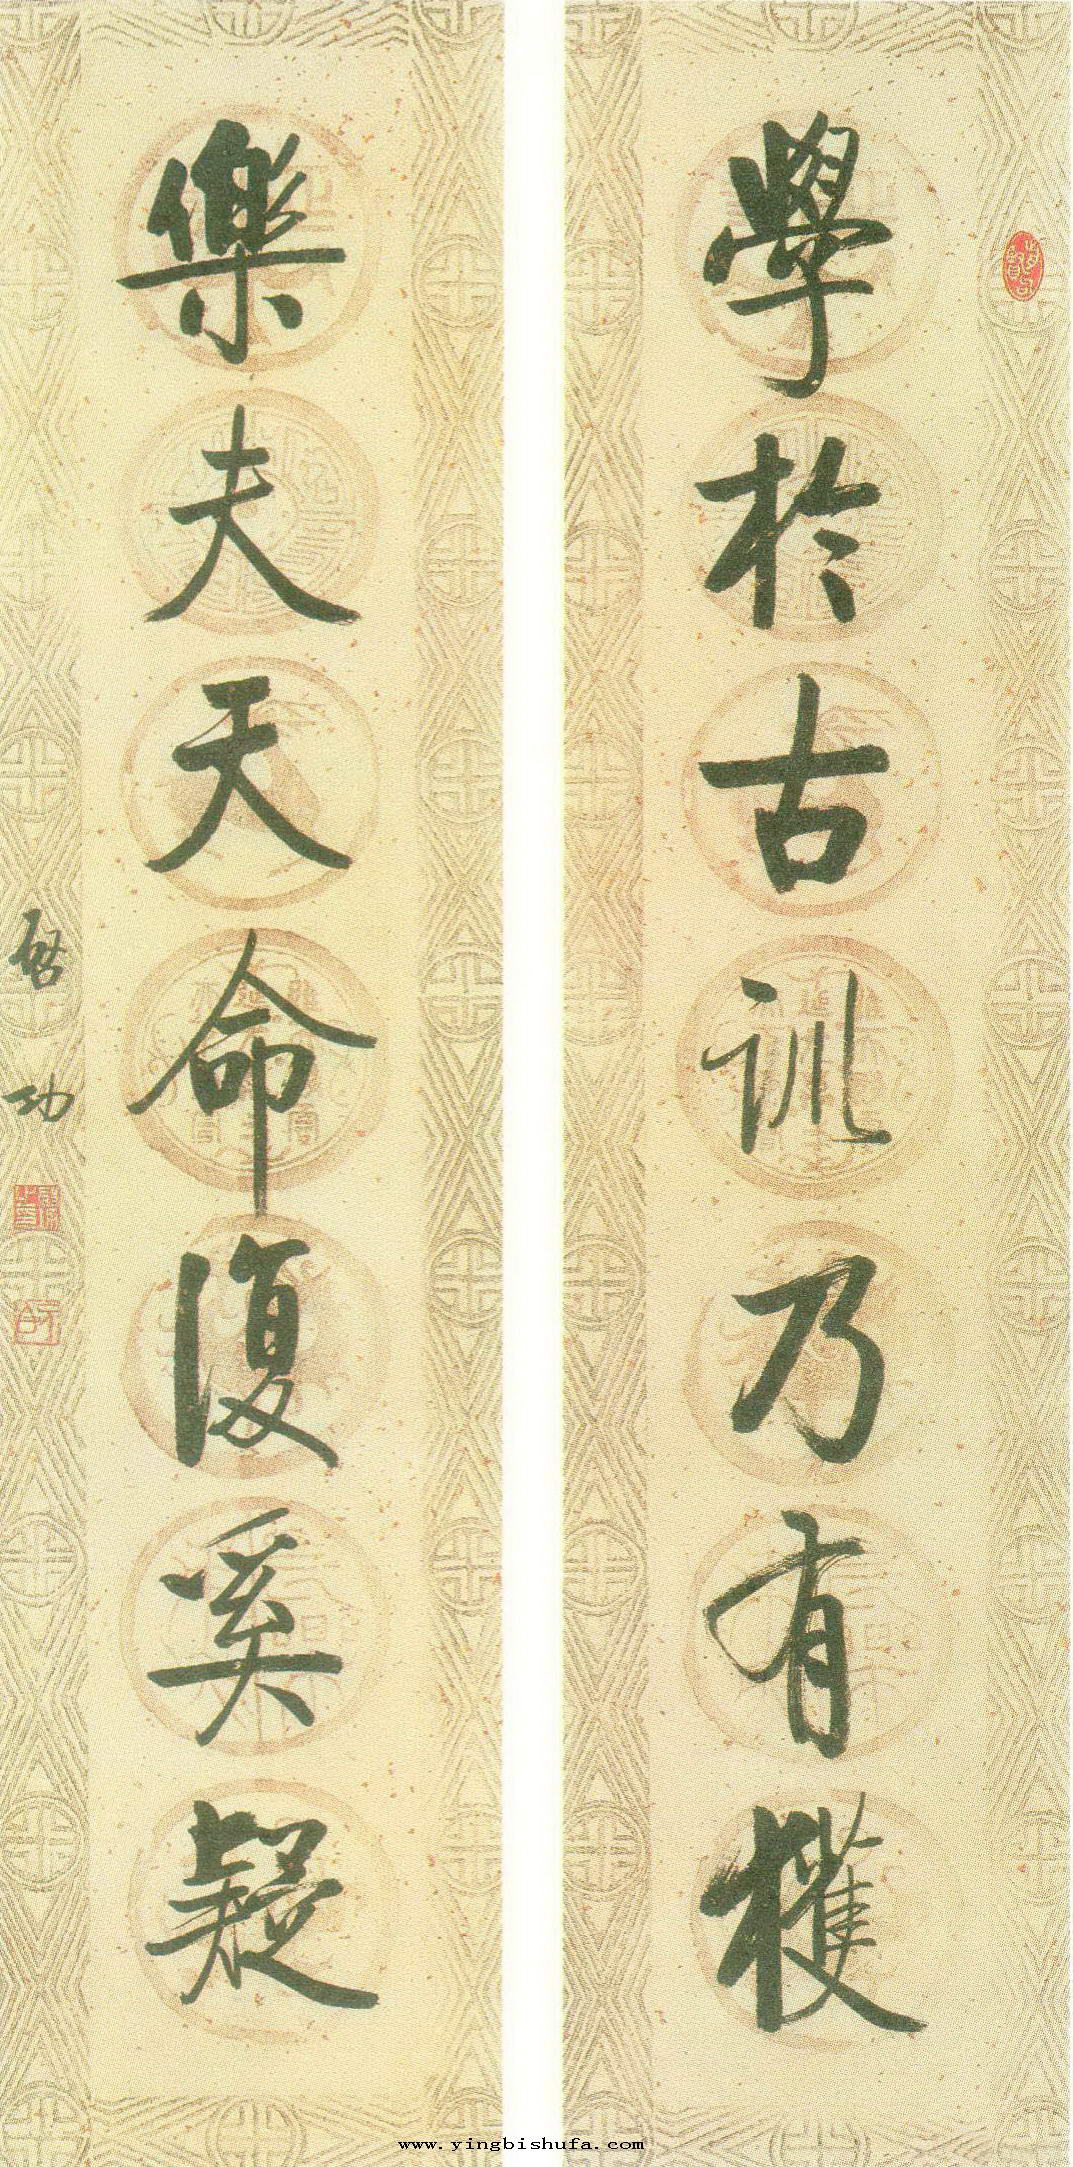 學於古訓乃有獲
樂夫天命復奚疑
啟功
www.yingbishufa.com